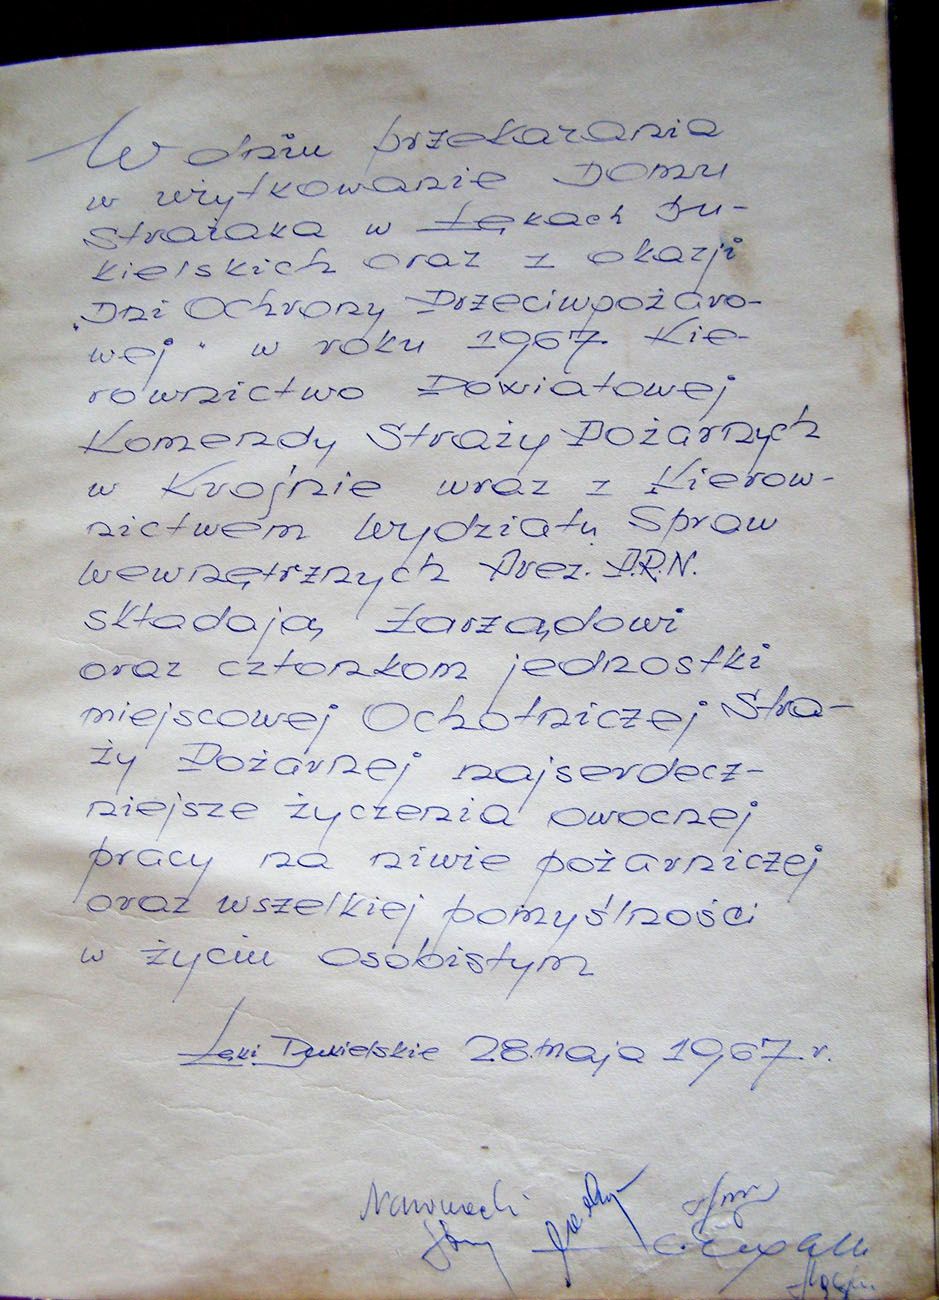 W dniu przekazania
w użytkowanie Domu
Strażaka w Łękach Du-
kielskich oraz z okazji
"Dni Ochrony Przeciwpożaro-
wej" w roku 1967 Kie-
rownictwo Powiatowej
Komendy Straży Pożarnych
w Krośnie wraz z Kierow-
nictwem Wydziału Spraw
Wewnętrznych Prez. P.R.N.
składają Zarządowi
oraz członkom jednostki
miejscowej Ochotniczej Stra-
ży Pożarnej najserdecz-
niejsze życzenia owocnej
pracy na niwie pożarniczej
oraz wszelkiej pomyślności
w życiu osobistym
Łęki Dukielskie 28 maja 1967 r.